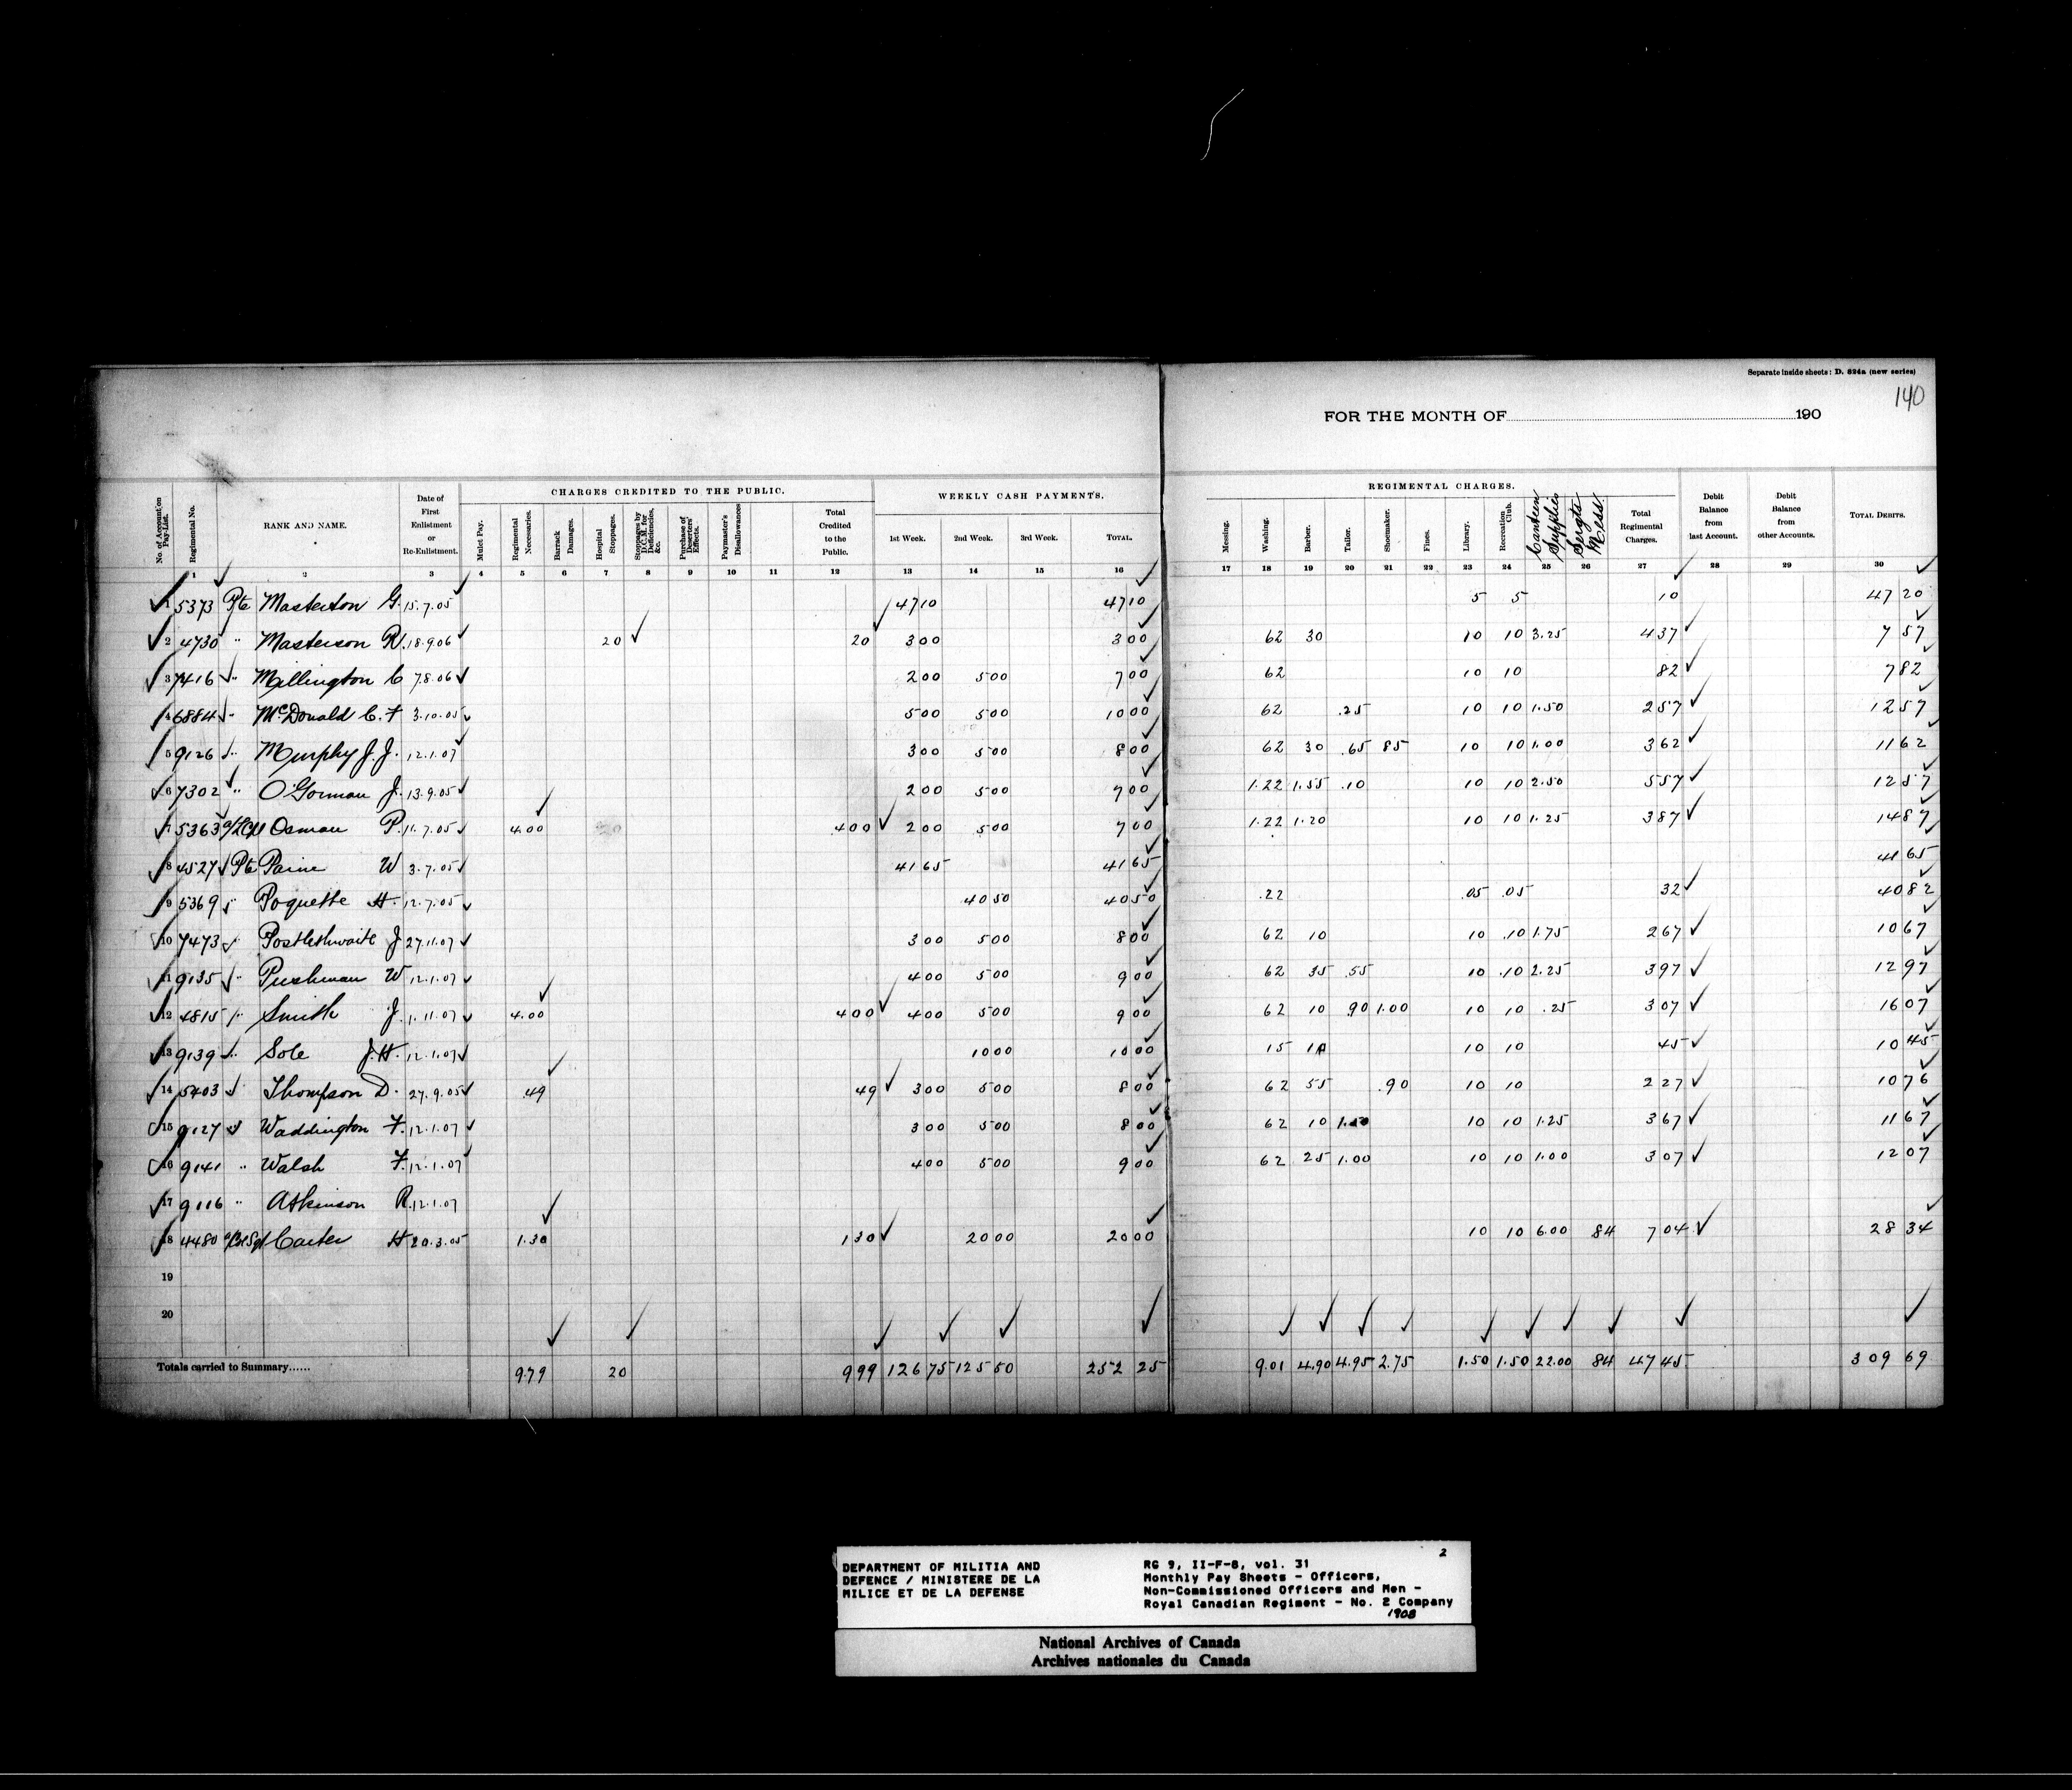 Separate inside sheets: D. 824a (new series)
140
FOR THE MONTH OF 190
CHARGES CREDITED TO THE PUBLIC. WEEKLY CASH PAYMENTS. REGIMENTAL CHARGES.
No. of Account on Pay-List. Regimental No. RANK AND NAME. Date of First Enlistment or Re-Enlistment. Mulct Pay. Regimental Necessaries. Barrack Damages. Hospital Stoppages. Stoppages by D.C.M. for Deficiencies, &c. Purchase of Deserters' Effects. Paymaster's Disallowances Total Credited to the Public. 1st Week. 2nd Week. 3rd Week. TOTAL. Messing. Washing. Barber. Tailor. Shoemaker. Fines. Library. Recreation Club. Canteen Supplies Sergts Mess Total Regimental Charges. Debit Balance from last Account. Debit Balance from other Accounts. TOTAL DEBITS.
1 2 3 4 5 6 7 8 9 10 11 12 13 14 15 16 17 18 19 20 21 22 23 24 25 26 27 28 29 30
1 5373 Pte Masterton G. 15.7.05 47 10 47 10 5 5 10 47 20
2 4730 " Masterson R. 18.9.06 20 20 3 00 3 00 62 30 10 10 3.25 4 37 7 57
3 7416 " Millington C 7.8.06 2 00 5 00 7 00 62 10 10 82 7 82
4 6884 " McDonald C. F 3.10.05 5 00 5 00 10 00 62 .25 10 10 1.50 2 57 12 57
5 9126 " Murphy J. J. 12.1.07 3 00 5 00 8 00 62 30 .65 85 10 10 1.00 3 62 11 62
6 7302 " O'Gorman J. 13.9.05 2 00 5 00 7 00 1.22 1.55 .10 10 10 2.50 5 57 12 57
7 5363 Osman P. 11.7.05 4.00 4 00 2 00 5 00 7 00 1.22 1.20 10 10 1.25 3 87 14 87
8 4527 Pte Paine W 3.7.05 41 65 41 65 41 65
9 5369 " Poquette H. 12.7.05 40 50 40 50 .22 .05 .05 32 40 82
10 7473 " Postlethwaite J 27.11.07 3 00 5 00 8 00 62 10 10 .10 1.75 2 67 10 67
11 9135 " Pushman W 12.1.07 4 00 5 00 9 00 62 35 .55 10 .10 2.25 3 97 12 97
12 4815 " Smith J. 1.11.07 4.00 4 00 4 00 5 00 9 00 62 10 .90 1.00 10 10 .25 3 07 16 07
13 9139 " Sole J.H. 12.1.07 10 00 10 00 15 10 10 10 45 10 45
14 5403 Thompson D. 27.9.05 .49 49 3 00 5 00 8 00 62 55 .90 10 10 2 27 10 76
15 9127 " Waddington F. 12.1.07 3 00 5 00 8 00 62 10 1.50 10 10 1.25 3 67 11 67
16 9141 " Walsh F. 12.1.07 4 00 5 00 9 00 62 25 1.00 10 10 1.00 3 07 12 07
17 9116 " Atkinson R. 12.1.07
18 4480 Carter H 20.3.05 1.30 1 30 20 00 20 00 10 10 6.00 84 7 04 28 34
19
20
Totals carried to Summary...... 9.79 20 9 99 126 75 125 50 252 25 9.01 4.90 4.95 2.75 1.50 1.50 22.00 84 47 45 309 69
DEPARTMENT OF MILITIA AND
DEFENCE / MINISTERE DE LA
MILICE ET DE LA DEFENSE
2
RG 9, II-F-8, vol. 31
Monthly Pay Sheets - Officers,
Non-Commissioned Officers and Men -
Royal Canadian Regiment - No. 2 Company
1908
National Archives of Canada
Archives nationales du Canada